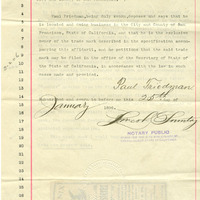 Paul Friedman, being duly sworn, deposes and says that he
is located and doing business in the City and County of San
Francisco, State of California, and that he is the exclusive
owner of the trade mark described in the specification accom-
panying this affidavit, and he petitions that the said trade
mark may be filed in the office of the Secretary of State of
the State of California, in accordance with the law in such
cases made and provided.
Paul Friedman
Subscribed and sworn to before me this 25th day of
January
NOTARY PUBLIC